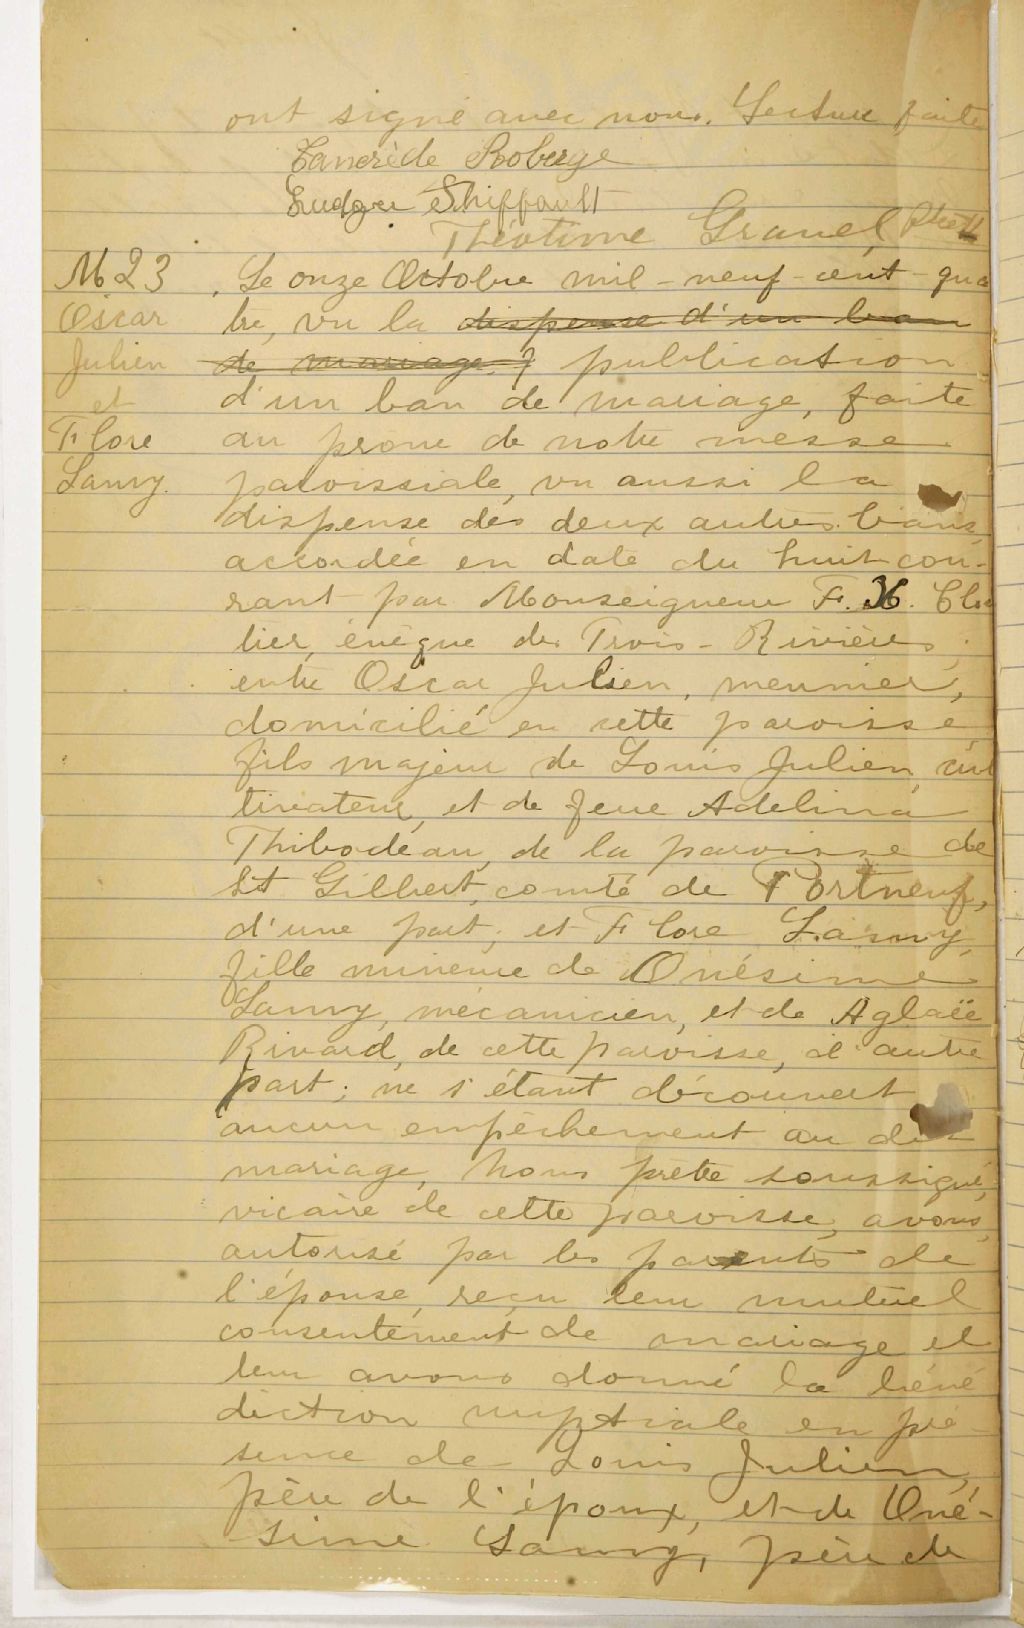 ont signé avec nous. Lecture faite
Tancrède Roberge
Ludger Shiffault
Théotime Gravel, Ptre
M 23
Oscar
Julien
et
Flore
Lamy.
Le onze Octobre mil-neuf-cent-qua
tre, vu la dispense d'un ban
de mariage, publication
d'un ban de mariage, faite
au prone de notre messe
paroissiale, vu aussi la
dispense des deux autres bans
accordée en date du huit cou-
rant par Monseigneur F. X. Clou
tier, évêque des Trois-Rivières,
entre Oscar Julien, meunier,
domicilié en cette paroisse,
fils majeur de Louis Julien, cul
tivateur, et de feue Adelina
Thibodeau, de la paroisse de
St Gilbert, comté de Portneuf,
d'une part; et Flore Lamy,
fille mineure de Onésime
Lamy, mécanicien, et de Aglaée
Rivard, de cette paroisse, d'autre
part; ne s'étant découvert
aucun empêchement au dit
mariage, Nous prêtre soussigné,
vicaire de cette paroisse, avons,
autorisé par les parents de
l'épouse, reçu leur mutuel
consentement de mariage et
leur avons donné la béné
diction nuptiale en pré-
sence de Louis Julien,
père de l'époux, et de Oné-
sime Lamy, père de